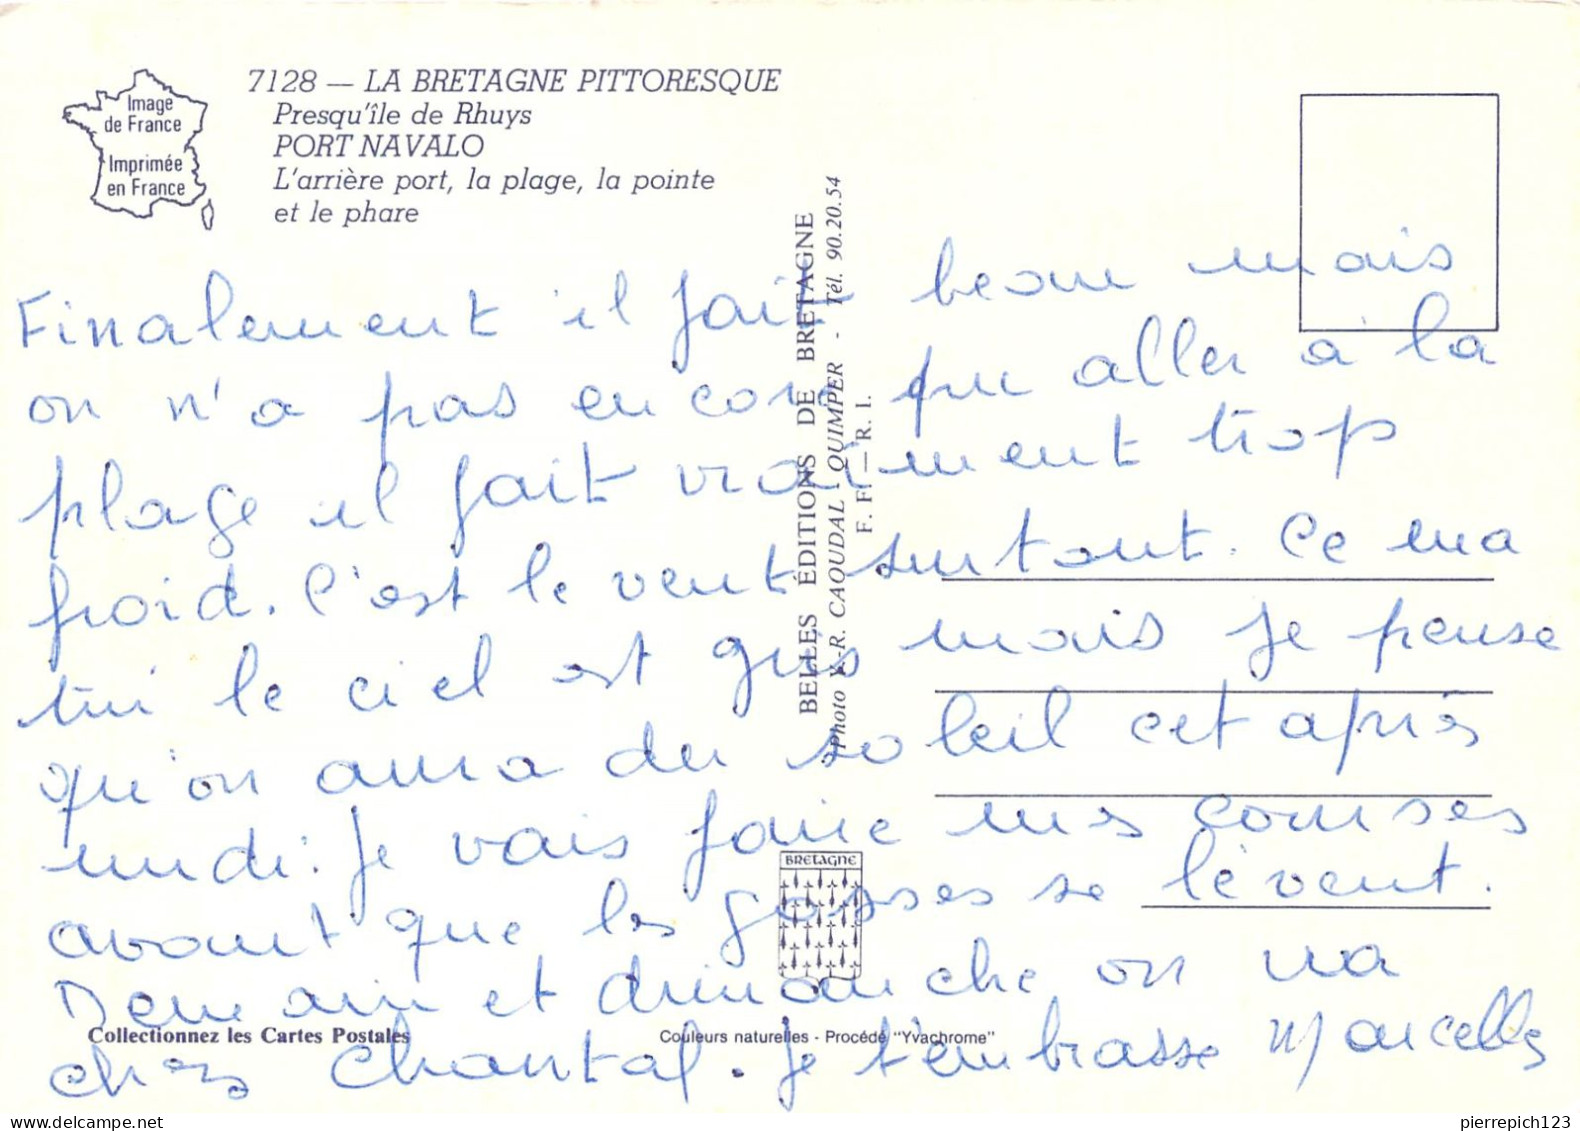 7128 — LA BRETAGNE PITTORESQUE
Presqu'île de Rhuys
PORT NAVALO
L'arrière port, la plage, la pointe
et le phare
Image
de France
Imprimée
en France
BELLES ÉDITIONS DE BRETAGNE
Photo Y.-R. CAOUDAL QUIMPER - Tél. 90.20.54
F. F. — R. I.
Finalement il fait beau mais
on n'a pas encore pu aller à la
plage il fait vraiment trop
froid. C'est le vent surtout. Ce ma
tin le ciel est gris mais je pense
qu'on aura du soleil cet après
midi. Je vais faire mes courses
avant que les gosses se lèvent.
Demain et dimanche on va
chez Chantal. Je t'embrasse Marcelle
BRETAGNE
Collectionnez les Cartes Postales
Couleurs naturelles - Procédé "Yvachrome"
pierrepich123